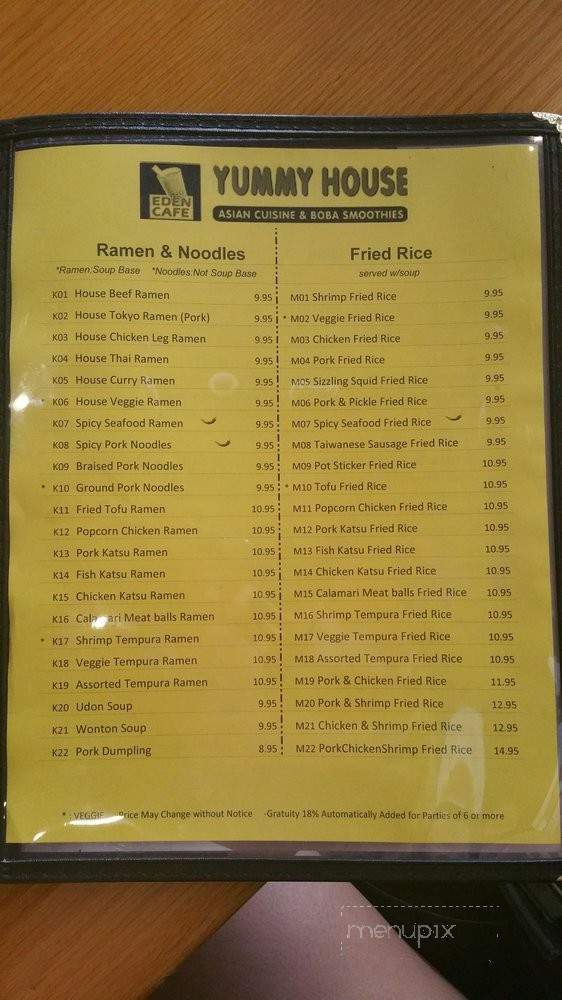 EDEN CAFE
YUMMY HOUSE
ASIAN CUISINE & BOBA SMOOTHIES
Ramen & Noodles
*Ramen:Soup Base *Noodles:Not Soup Base
K01 House Beef Ramen 9.95
K02 House Tokyo Ramen (Pork) 9.95
K03 House Chicken Leg Ramen 9.95
K04 House Thai Ramen 9.95
K05 House Curry Ramen 9.95
* K06 House Veggie Ramen 9.95
K07 Spicy Seafood Ramen 9.95
K08 Spicy Pork Noodles 9.95
K09 Braised Pork Noodles 9.95
* K10 Ground Pork Noodles 9.95
K11 Fried Tofu Ramen 10.95
K12 Popcorn Chicken Ramen 10.95
K13 Pork Katsu Ramen 10.95
K14 Fish Katsu Ramen 10.95
K15 Chicken Katsu Ramen 10.95
K16 Calamari Meat balls Ramen 10.95
* K17 Shrimp Tempura Ramen 10.95
K18 Veggie Tempura Ramen 10.95
K19 Assorted Tempura Ramen 10.95
K20 Udon Soup 9.95
K21 Wonton Soup 9.95
K22 Pork Dumpling 8.95
Fried Rice
served w/soup
M01 Shrimp Fried Rice 9.95
* M02 Veggie Fried Rice 9.95
M03 Chicken Fried Rice 9.95
M04 Pork Fried Rice 9.95
M05 Sizzling Squid Fried Rice 9.95
M06 Pork & Pickle Fried Rice 9.95
M07 Spicy Seafood Fried Rice 9.95
M08 Taiwanese Sausage Fried Rice 9.95
M09 Pot Sticker Fried Rice 10.95
* M10 Tofu Fried Rice 10.95
M11 Popcorn Chicken Fried Rice 10.95
M12 Pork Katsu Fried Rice 10.95
M13 Fish Katsu Fried Rice 10.95
M14 Chicken Katsu Fried Rice 10.95
M15 Calamari Meat balls Fried Rice 10.95
M16 Shrimp Tempura Fried Rice 10.95
M17 Veggie Tempura Fried Rice 10.95
M18 Assorted Tempura Fried Rice 10.95
M19 Pork & Chicken Fried Rice 11.95
M20 Pork & Shrimp Fried Rice 12.95
M21 Chicken & Shrimp Fried Rice 12.95
M22 PorkChickenShrimp Fried Rice 14.95
* : VEGGIE -Price May Change without Notice -Gratuity 18% Automatically Added for Parties of 6 or more
menupix